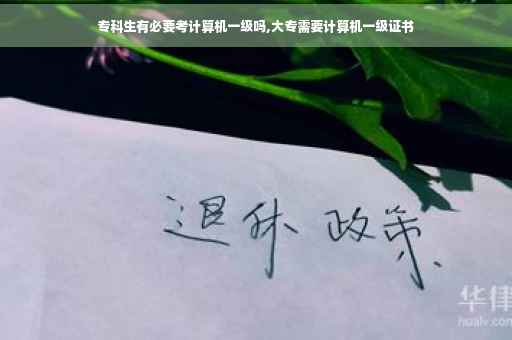 专科生有必要考计算机一级吗,大专需要计算机一级证书
退休 政策
华律
hualv.com